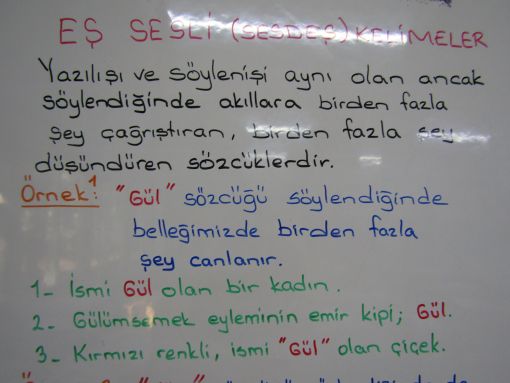 EŞ SESLİ (SESDEŞ) KELİMELER
Yazılışı ve söylenişi aynı olan ancak
söylendiğinde akıllara birden fazla
şey çağrıştıran, birden fazla şey
düşündüren sözcüklerdir.
Örnek1: "Gül" sözcüğü söylendiğinde
belleğimizde birden fazla
şey canlanır.
1- İsmi Gül olan bir kadın.
2- Gülümsemek eyleminin emir kipi; Gül.
3- Kırmızı renkli, ismi "Gül" olan çiçek.